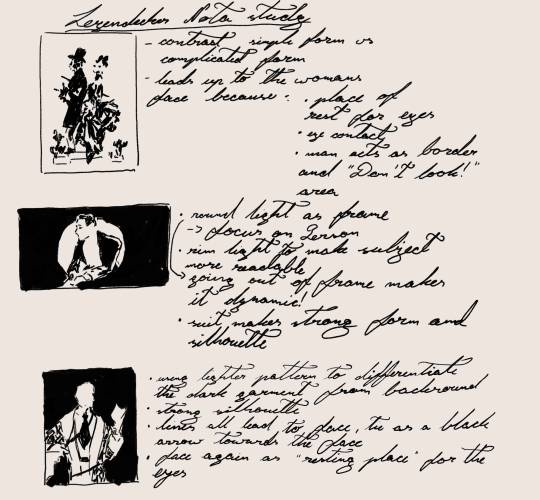 Leyendecker Nota study
- contrast simple form vs
complicated form
- leads up to the womans
face because: • place of
rest for eyes
• eye contact
• man acts as border
and "Don't look!"
area
• round light as frame
-> focus on Person
• rim light to make subject
more readable
going out of frame makes
it dynamic!
• suit makes strong form and
silhouette
• using lighter pattern to differentiate
the dark garment from backround
• strong silhouette
• lines all lead to face, tie as a black
arrow towards the face
• face again as "resting place" for the
eyes